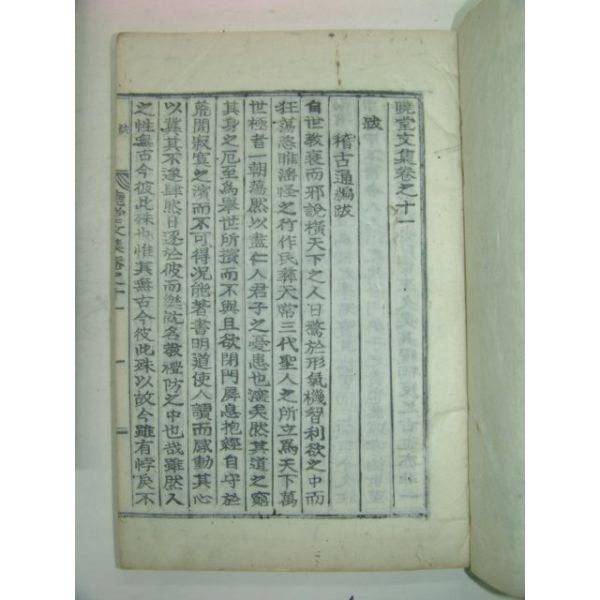 曉堂文集卷之十一
跋
稽古通編跋
自世敎衰而邪說橫天下之人日騖於形氣機智利欲之中而
狂蕩恣睢譎怪之行作民彝天常三代聖人之所立爲天下萬
世極者一朝蕩然以盡仁人君子之憂患也深矣然其道之窮
其身之厄至爲擧世所擯而不與且欲閉門屛息抱經自守於
荒閒寂寞之濱而不可得况能著書明道使人讀而感動其心
以冀其不遂肆然日逐於彼而樂於名敎禮防之中也哉雖然人
之性無古今彼此殊也惟其無古今彼此殊以故今雖有悖戾不
文集卷之十一